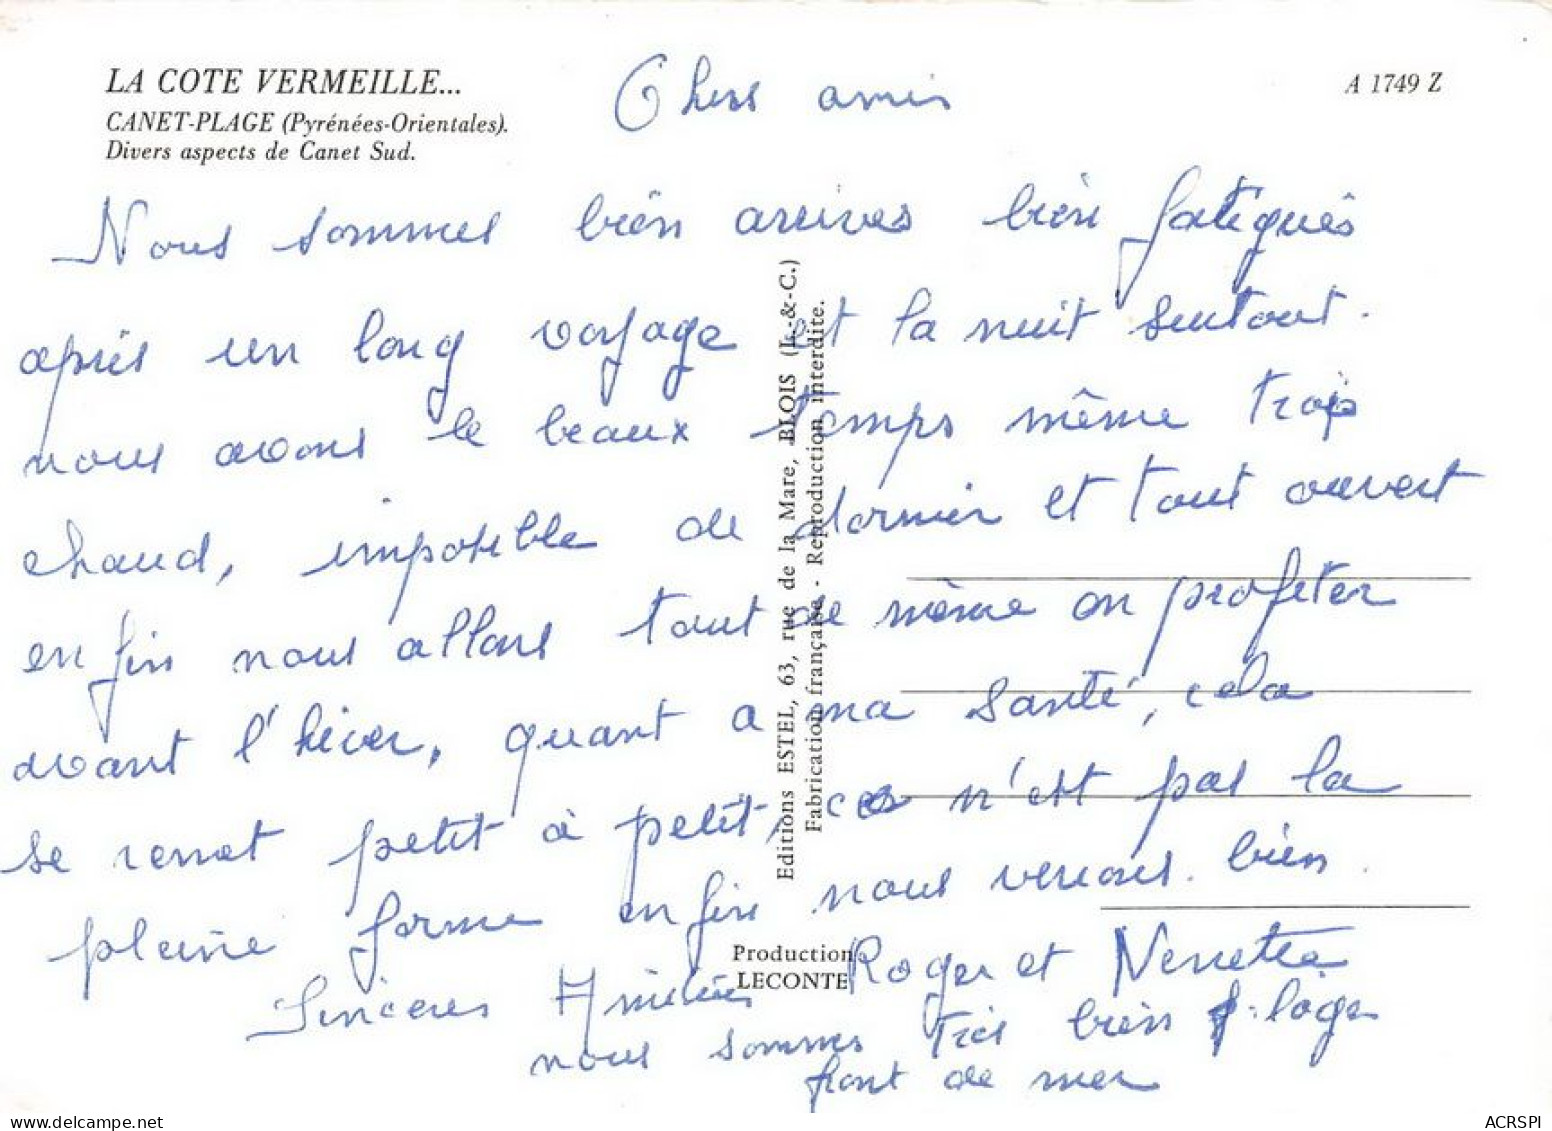 LA COTE VERMEILLE...
CANET-PLAGE (Pyrénées-Orientales).
Divers aspects de Canet Sud.
A 1749 Z
Chers amis
Nous sommes bien arrives bien fatigués
après un long voyage et la nuit surtout.
nous avons le beaux temps même trop
chaud, imposible de dormir et tout ouvert
enfin nous allons tout de même en profiter
avant l'hiver, quant a ma santé, cela
se remet petit à petit, ce n'est pas la
pleine forme enfin nous verrons bien.
Sincères Amitiés Roger et
nous sommes très bien loge
front de mer
Editions ESTEL, 63, rue de la Mare, BLOIS (L.-&-C.)
Fabrication française - Reproduction interdite.
Production
LECONTE
ACRSPI